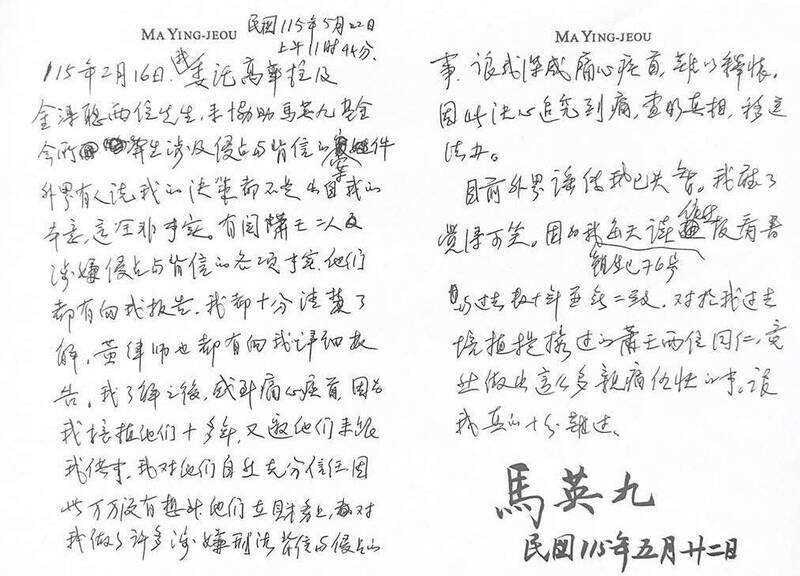 MA YING-JEOU
民國115年5月22日
上午11時44分.
115年2月16日,我委託高華柱及
金溥聰兩位先生,來協助馬英九基金
會所發生涉及侵占与背信的案件
外界有人說我的決策都不是出自我的
本意,這全非事實。有関蕭王二人及
涉嫌侵占与背信的各項事宜,他們
都有向我报告,我都十分清楚了
解,黃律师也都有向我详细报
告。我了解之後,感到痛心疾首,因為
我培植他們十多年,又邀他們来跟
我供事,我对他們自然充分信任因
此万万没有想到他們在財務上,都对
我做了許多涉嫌刑法背信与侵占的
MA YING-JEOU
事,讓我深感痛心疾首,難以釋怀。
因此決心追究到底,查明真相,移送
法办。
目前外界謠传我已失智。我聽了
覺得可笑。因为我每天讀报看書
与过去数十年並無二致,对於我过去
培植提携过的蕭王兩位同仁,竟
然做出這么多親痛仇快的事,讓
我真的十分難过。
馬英九
民國115年五月廿二日